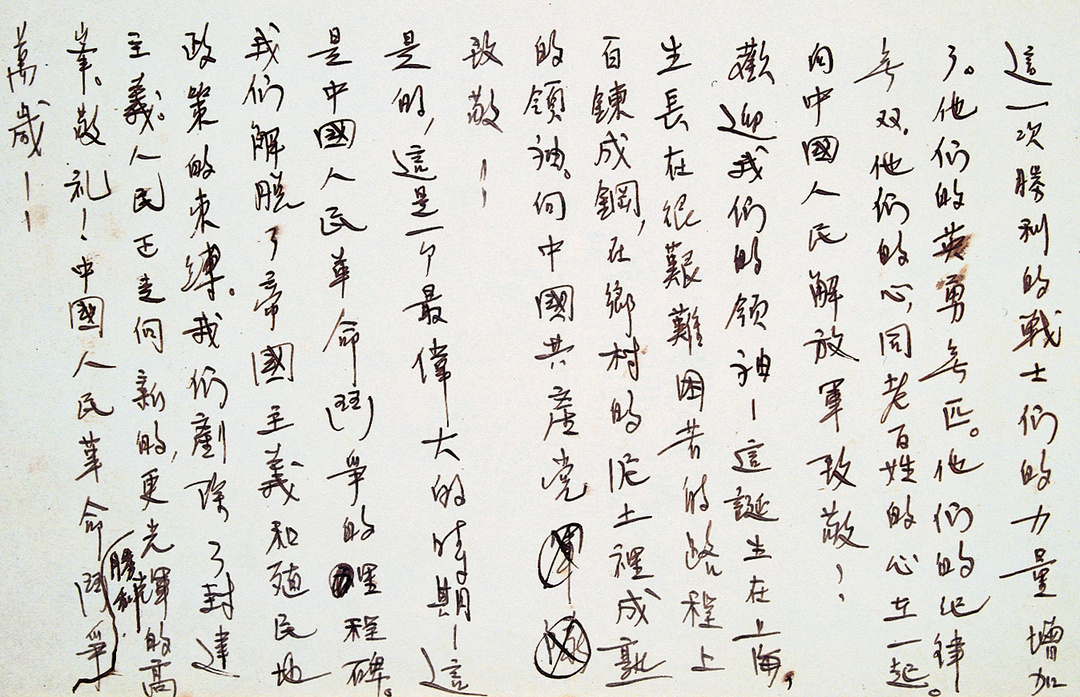 這一次勝利的戰士们的力量增加
了。他们的英勇無匹。他们的纪律
無双，他们的心，同老百姓的心在一起。
向中國人民解放軍致敬！
歡迎我们的领袖——這誕生在上海，
生長在很艱難困苦的路程上
百鍊成鋼，在鄉村的泥土裡成熟
的领袖。向中國共產党
致敬！！
是的，這是一个最偉大的時期——這
是中國人民革命鬥爭的里程碑。
我们解脱了帝國主義和殖民地
政策的束縛。我们剷除了封建
主義。人民正走向新的，更光輝的高
峯。敬礼！中國人民革命鬥爭勝利
萬歲！！